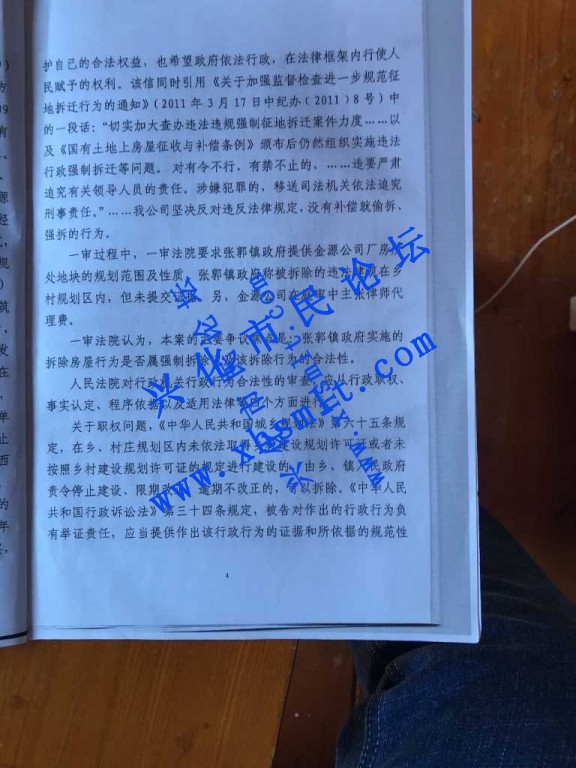 护自己的合法权益，也希望政府依法行政，在法律框架内行使人
民赋予的权利。该信同时引用《关于加强监督检查进一步规范征
地拆迁行为的通知》（2011 年 3 月 17 日中纪办（2011）8 号）中
的一段话：“切实加大查办违法违规强制征地拆迁案件力度……以
及《国有土地上房屋征收与补偿条例》颁布后仍然组织实施违法
行政强制拆迁等问题。 对有令不行、有禁不止的，……违要严肃
追究有关领导人员的责任。涉嫌犯罪的，移送司法机关依法追究
刑事责任。”……我公司坚决反对违反法律规定，没有补偿就偷拆、
强拆的行为。
一审过程中，一审法院要求张郭镇政府提供金源公司厂房
处地块的规划范围及性质，张郭镇政府称被拆除的违法建筑在乡
村规划区内，但未提交证据。另，金源公司在庭审中主张律师代
理费。
一审法院认为，本案的主要争议焦点是：张郭镇政府实施的
拆除房屋行为是否属强制拆除及该拆除行为的合法性。
人民法院对行政机关行政行为合法性的审查，应从行政职权、
事实认定、程序依据以及适用法律等四个方面进行。
关于职权问题，《中华人民共和国城乡规划法》第六十五条规
定，在乡、村庄规划区内未依法取得乡村建设规划许可证或者未
按照乡村建设规划许可证的规定进行建设的，由乡、镇人民政府
责令停止建设、限期改正；逾期不改正的，可以拆除。《中华人民
共和国行政诉讼法》第三十四条规定，被告对作出的行政行为负
有举证责任，应当提供作出该行政行为的证据和所依据的规范性
4
兴化市民论坛
www.xhsmlt.com